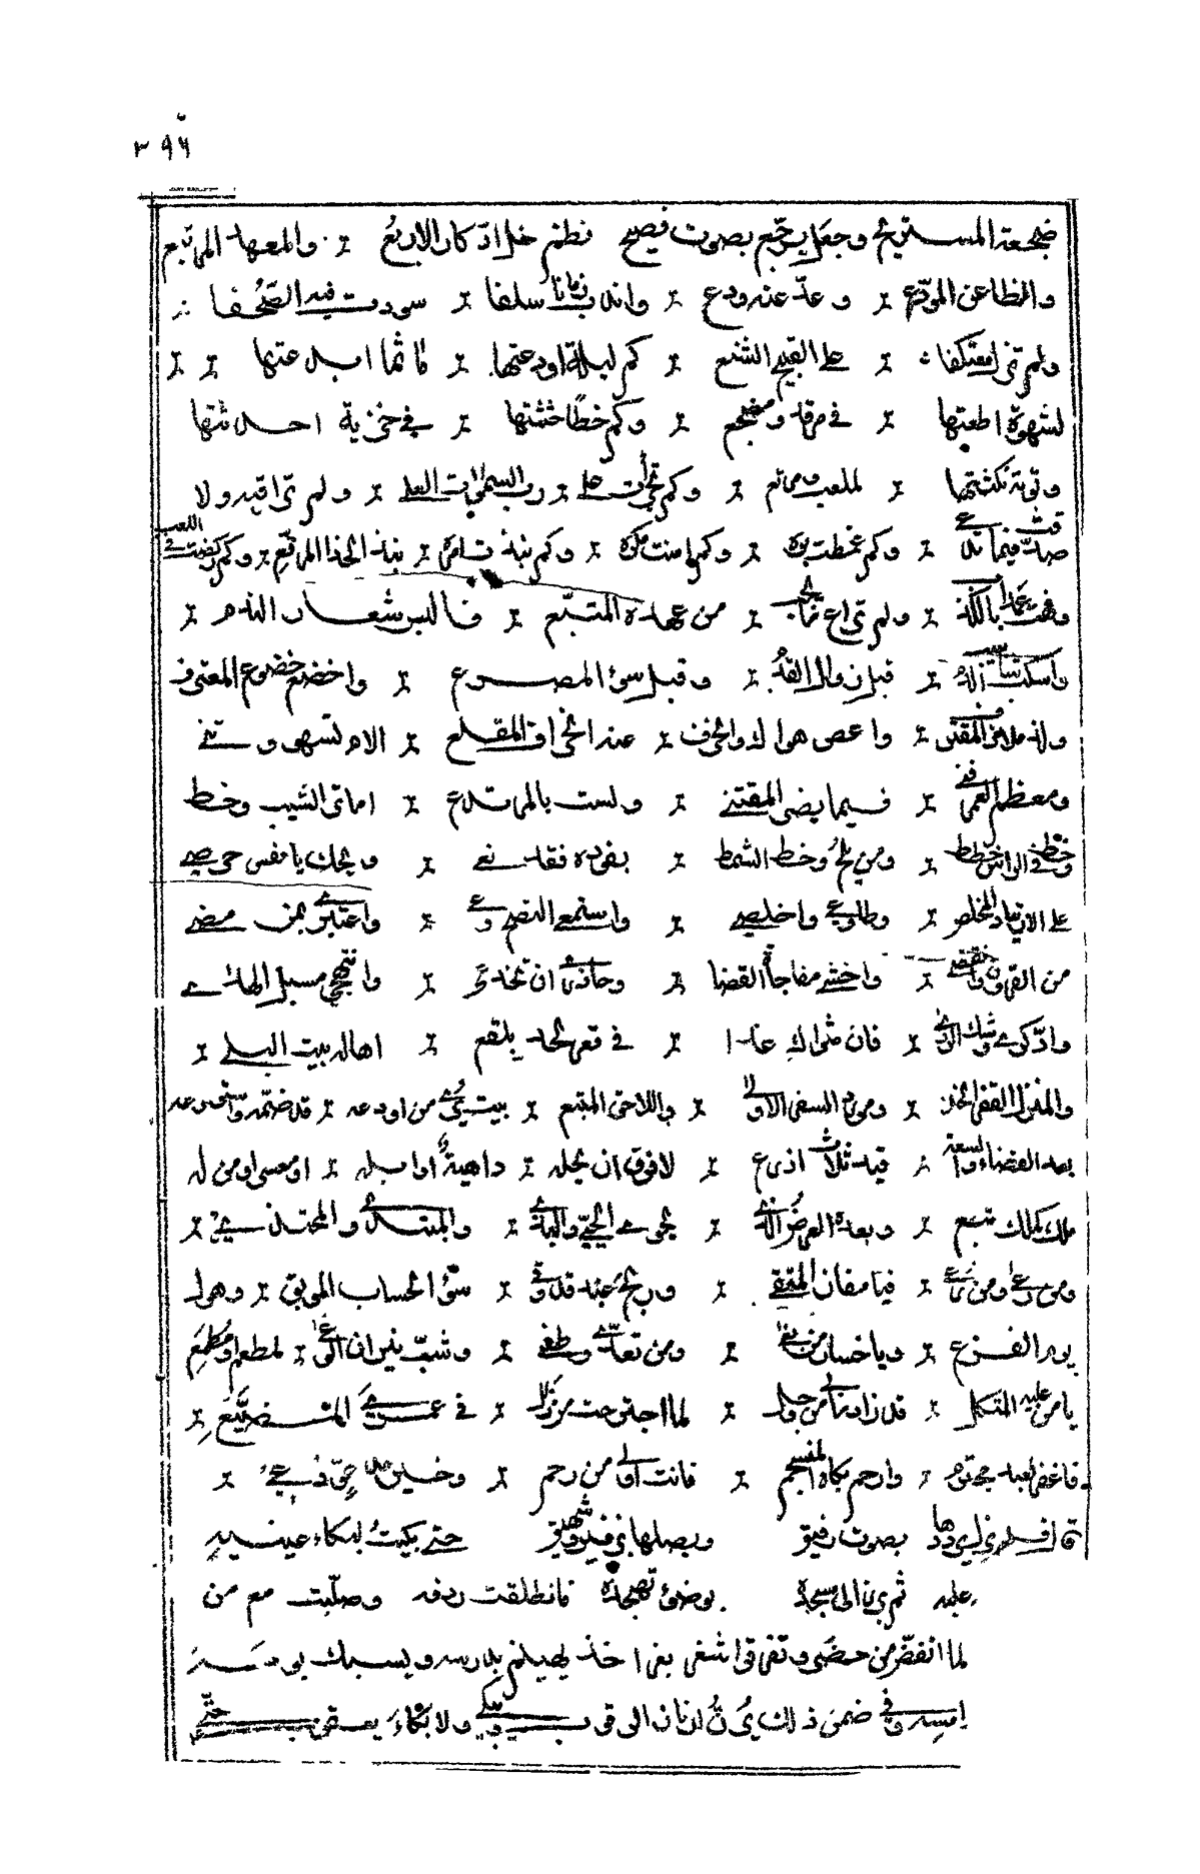 ٣٩٦
ضجعة المستريح وجعل يرجع بصوت فصيح فطم خل ادكار الاربع والمعهد المرتبع
والظاعن المودع وعد عنه ودع واندب زمانا سلفا سودت فيه الصحفا
ولم تزل معتكفا على القبيح الشنع كم ليلة اودعتها مآثما ابدعتها
لشهوة اطعتها في مرقد ومضجع وكم خطا حثثتها في خزية احدثتها
وتوبة نكثتها لملعب ومرتع وكم تجرأت على رب السموات العلى ولم تراقبه ولا
صدقت فيما تدعي وكم غمطت بره وكم امنت مكره وكم نبذت امره نبذ الحذا المرقع وكم ركضت في اللعب
وفهت عمدا بالكذب ولم تراع ما يجب من عهده المتبع فالبس شعار الندم
واسكب شآبيب الدم قبل زوال القدم وقبل سوء المصرع واخضع خضوع المعترف
ولذ ملاذ المقترف واعص هواك وانحرف عنه انحراف المقلع الام تسهو وتني
ومعظم العمر فني فيما يضر المقتني ولست بالمرتدع اما ترى الشيب وخط
وخط في الراس خطط ومن يلح وخط الشمط بفوده فقد نعي ويحك يا نفس احرصي
على ارتياد المخلص وطاوعي واخلصي واستمعي النصح وعي واعتبري بمن مضى
من القرون وانقضى واخشي مفاجاة القضا وحاذري ان تخدعي وانتهجي سبل الهدى
وادكري وشك الردى فان مثواك غدا في قعر لحد بلقع اها له بيت البلى
والمنزل القفر الخلا ومورد السفر الاولى واللاحق المتبع بيت يرى من اودعه قد ضمه واستودعه
بعد الفضاء والسعة قيد ثلاث اذرع لا فرق ان يحله داهية او ابله او معسر او من له
ملك كملك تبع وبعده العرض الذي يحوي الحيي والبذي والمبتدي والمحتذي
ومن رعى ومن رعي فيا مفاز المتقي وربح عبد قد وقي سوء الحساب الموبق وهول
يوم الفزع ويا خسار من بغى ومن تعدى وطغى وشب نيران الوغى لمطعم او مطمع
يا من عليه المتكل قد زاد ما بي من وجل لما اجترحت من زلل في عمري المضيع
فاغفر لعبد مجترم وارحم بكاه المنسجم فانت اولى من رحم وخير مدعو دعي
قال فلم يزل يرددها بصوت رقيق ويصلها بزفير وشهيق حتى بكيت لبكاء عينيه
عليه ثم برز الى مسجده بوضوء تهجده فانطلقت ردفه وصليت مع من
لما انفض من حضر وتفرقوا شغر بغر اخذ يهينم بدرسه ويسبك يومه
امسه وفي ضمن ذلك يرن ارنان الرقوب ويبكي ولا بكاء يعقوب حتى